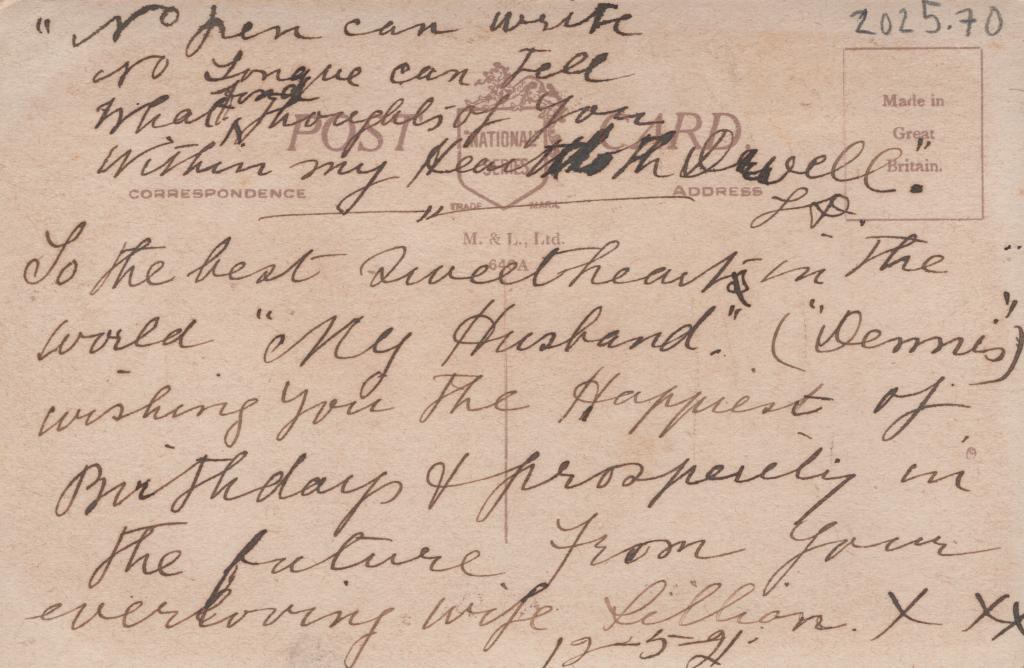 " No pen can write
2025.70
No Tongue can Tell
fond
What ^ Thoughts of You
Within my Heart doth Dwell."
L D.
POST CARD
NATIONAL SERIES
TRADE MARK
CORRESPONDENCE
ADDRESS
Made in
Great
Britain.
M. & L., Ltd.
To the best Sweetheart in The
world "My Husband." ("Dennis")
wishing You The Happiest of
Birthdays & prosperity in
The future From Your
everloving wife Lillian. X XX
12-5-21.